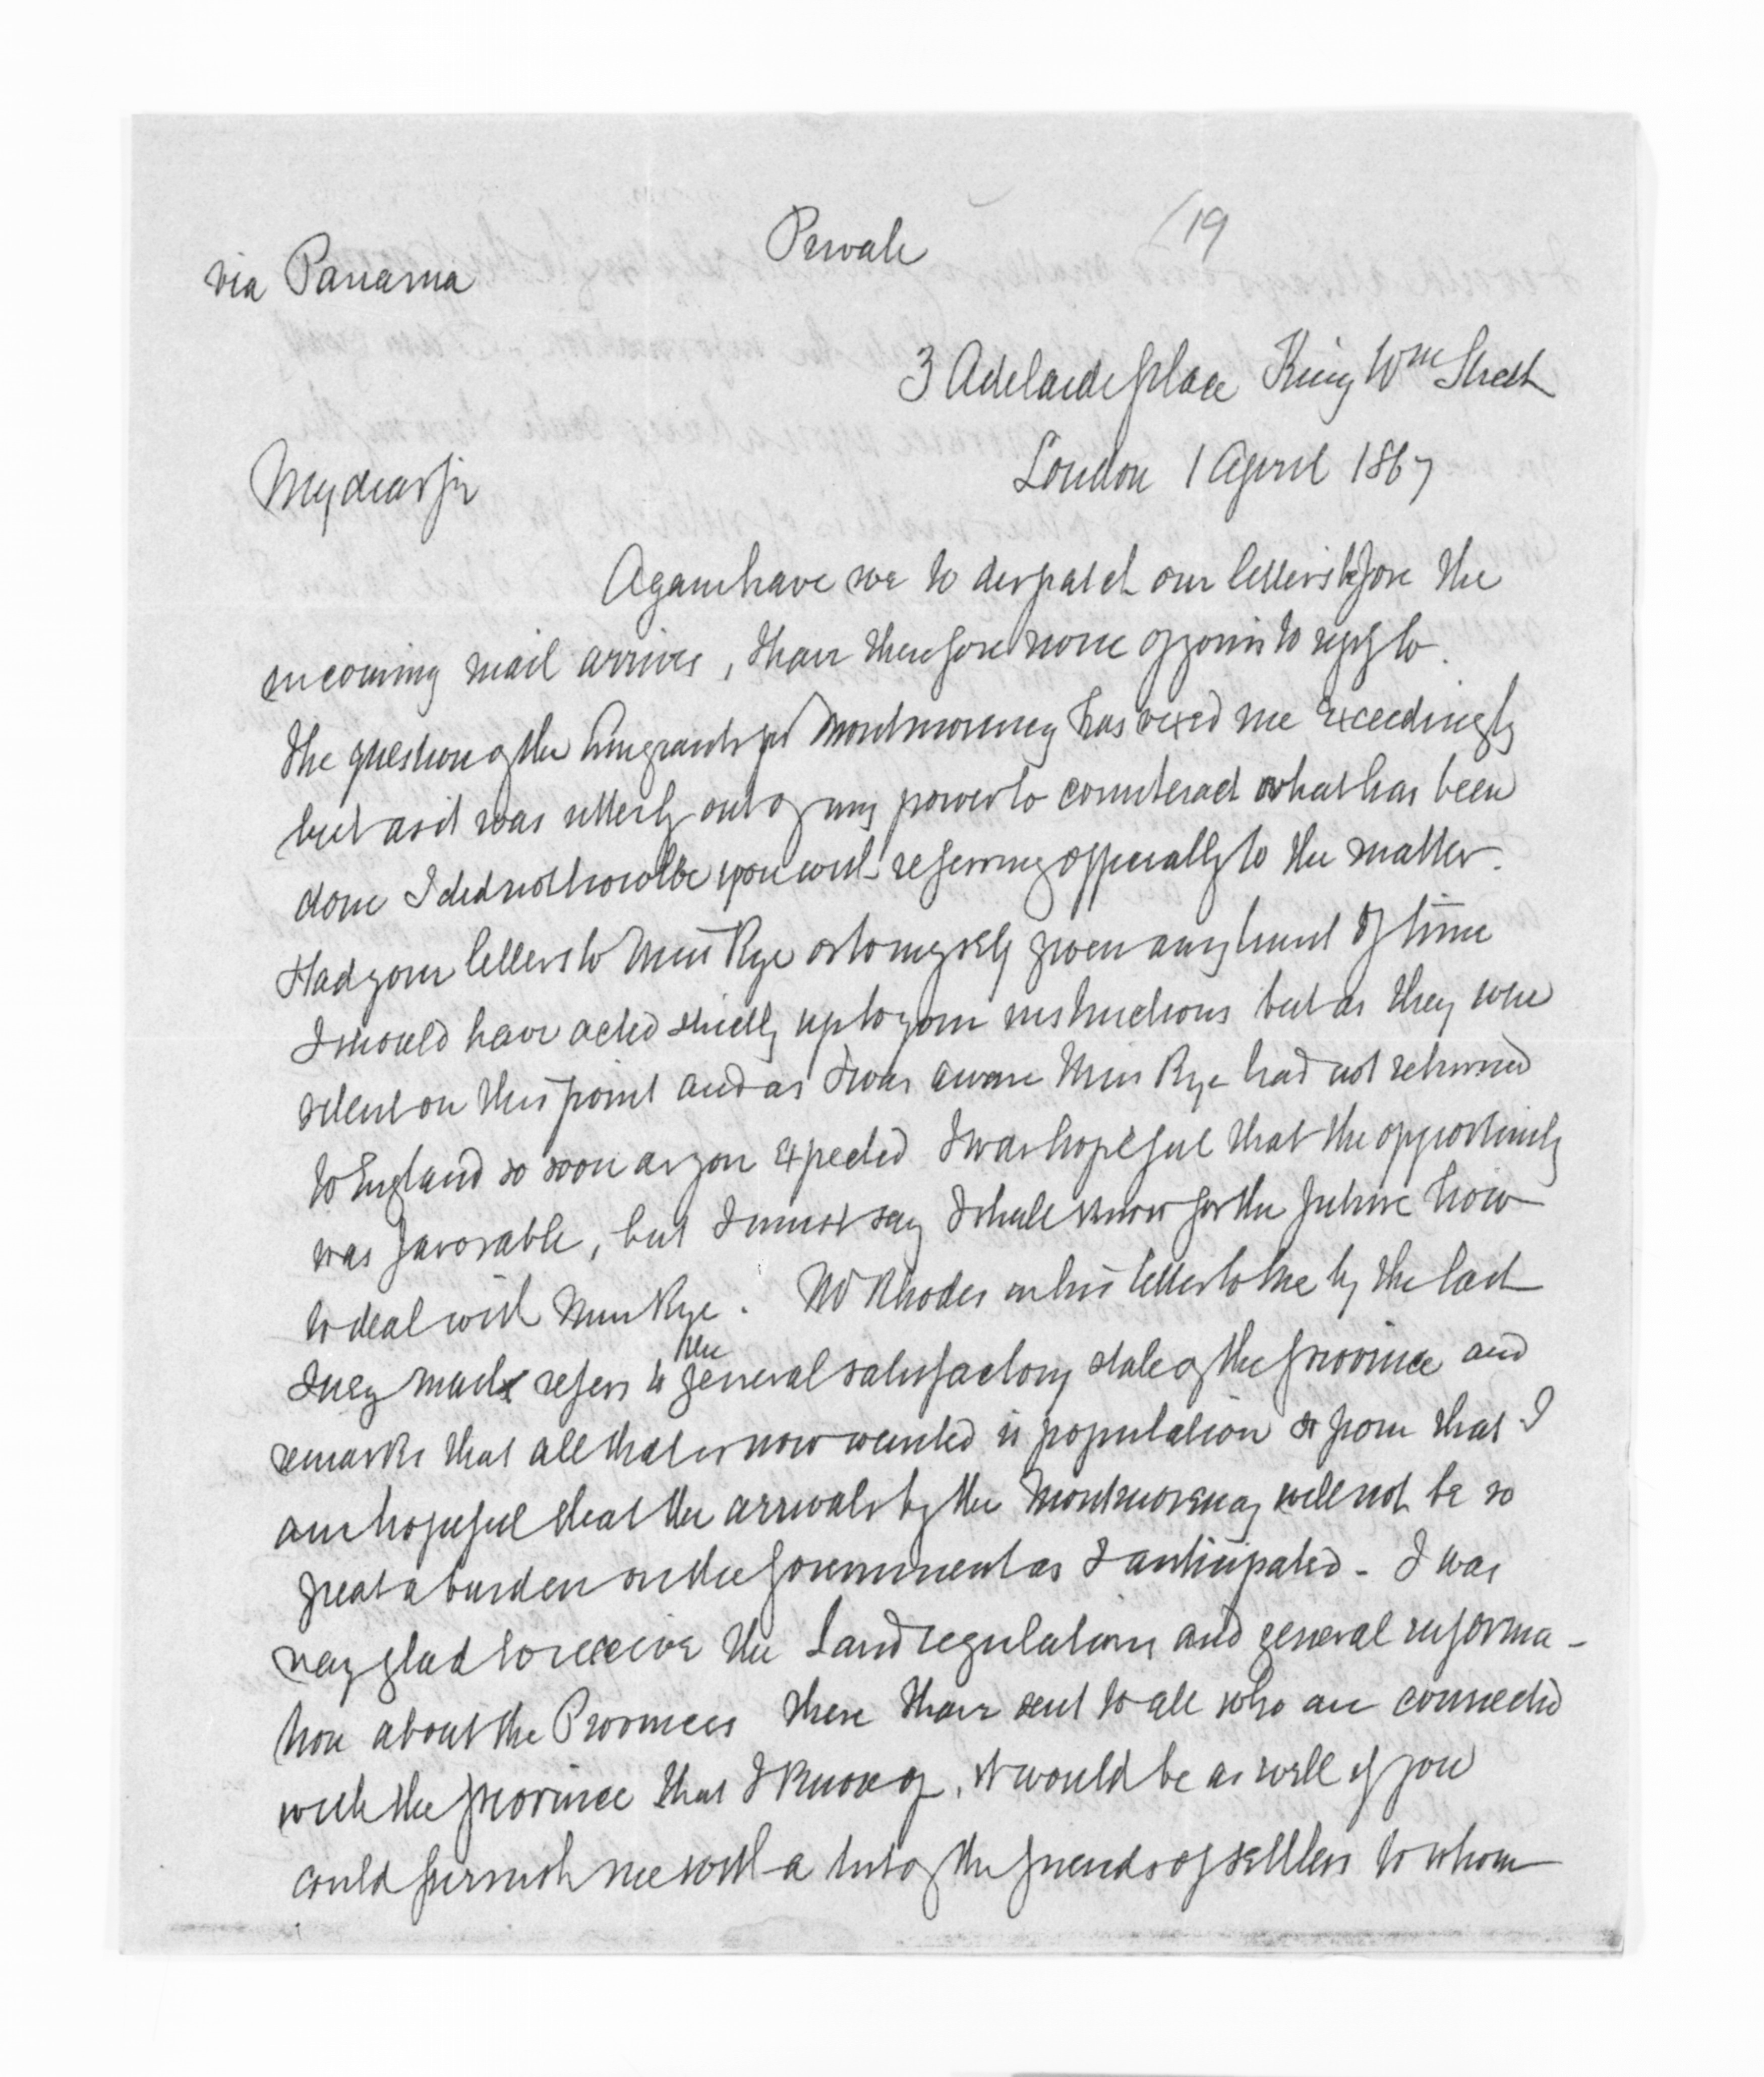 Private
19
via Panama
3 Adelaide place King Wm Street
London 1 April 1867
My dear Sir
Again have we to despatch our letters before the
incoming mail arrives, I have therefore none of yours to reply to.
The question of the Emigrants per Montmorency has vexed me exceedingly
but as it was utterly out of my power to counteract what has been
done I did not trouble you with referring officially to the matter.
Had your letters to Miss Rye or to myself given any limit of time
I should have acted strictly up to your instructions but as they were
silent on this point and as I was aware Miss Rye had not returned
to England so soon as you expected I was hopeful that the opportunity
was favorable, but I must say I shall know for the future how
to deal with Miss Rye. Mr Rhodes in his letter to me by the last
Suez mail refers to the general satisfactory state of the province and
remarks that all that is now wanted is population & from that I
am hopeful that the arrivals by the Montmorency will not be so
great a burden on the Government as I anticipated - I was
very glad to receive the Land regulations and general informa-
tion about the Provinces these I have sent to all who are connected
with the province that I know of, it would be as well if you
could furnish me with a list of the friends of settlers to whom